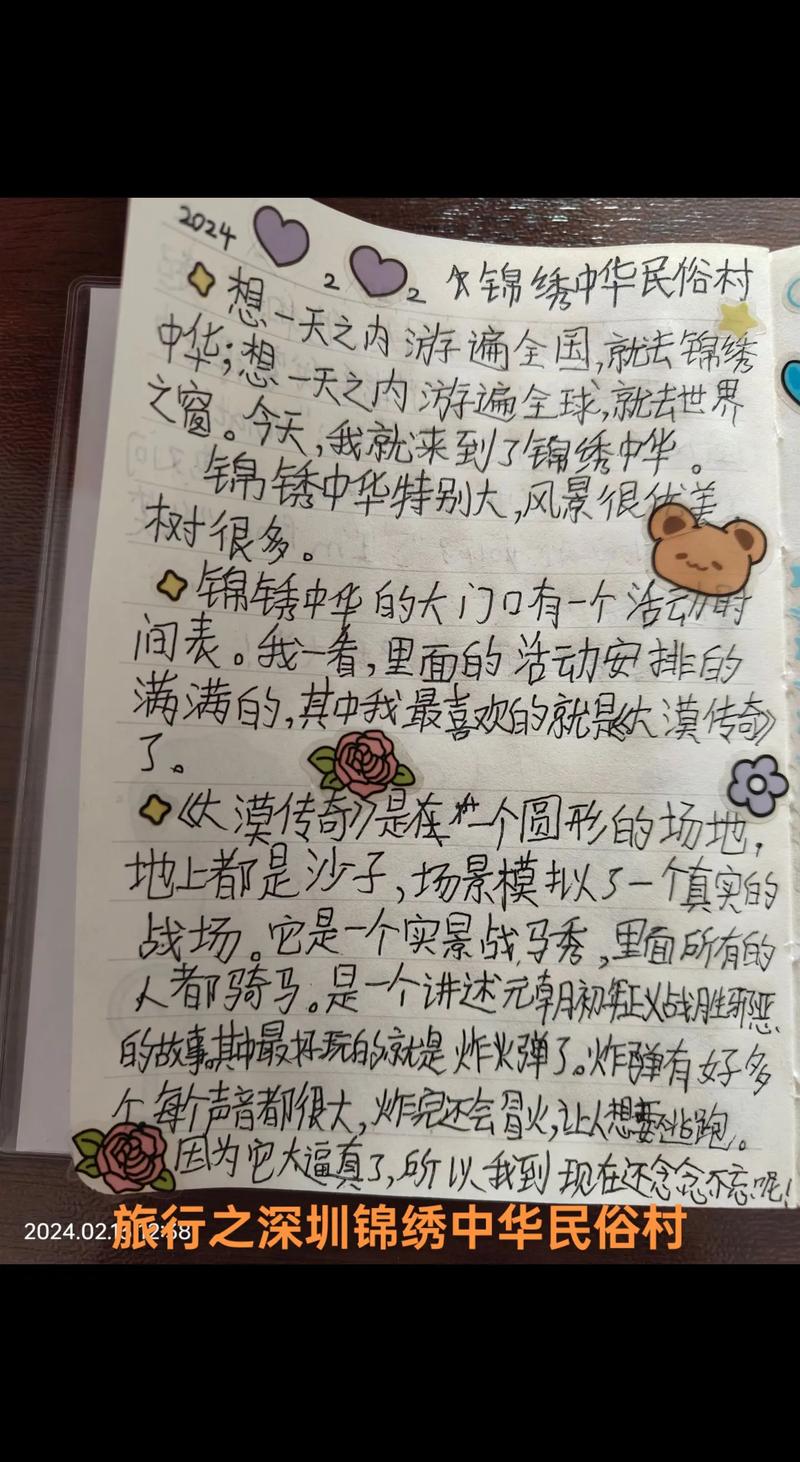 2024 2 2 锦绣中华民俗村
想一天之内游遍全国,就去锦绣
中华;想一天之内游遍全球,就去世界
之窗。今天,我就来到了锦绣中华。
锦绣中华特别大,风景很优美,
树很多。
锦绣中华的大门口有一个活动时
间表。我一看,里面的活动安排的
满满的,其中我最喜欢的就是《大漠传奇》
了。
《大漠传奇》是在一个圆形的场地,
地上都是沙子,场景模拟了一个真实的
战场。它是一个实景战马秀,里面所有的
人都骑马。是一个讲述元朝初年正义战胜邪恶
的故事。其中最好玩的就是炸火弹了。炸弹有好多
个,每个声音都很大,炸完还会冒火,让人想要逃跑。
因为它太逼真了,所以我到现在还念念不忘呢!
2024.02.1 12:58
旅行之深圳锦绣中华民俗村